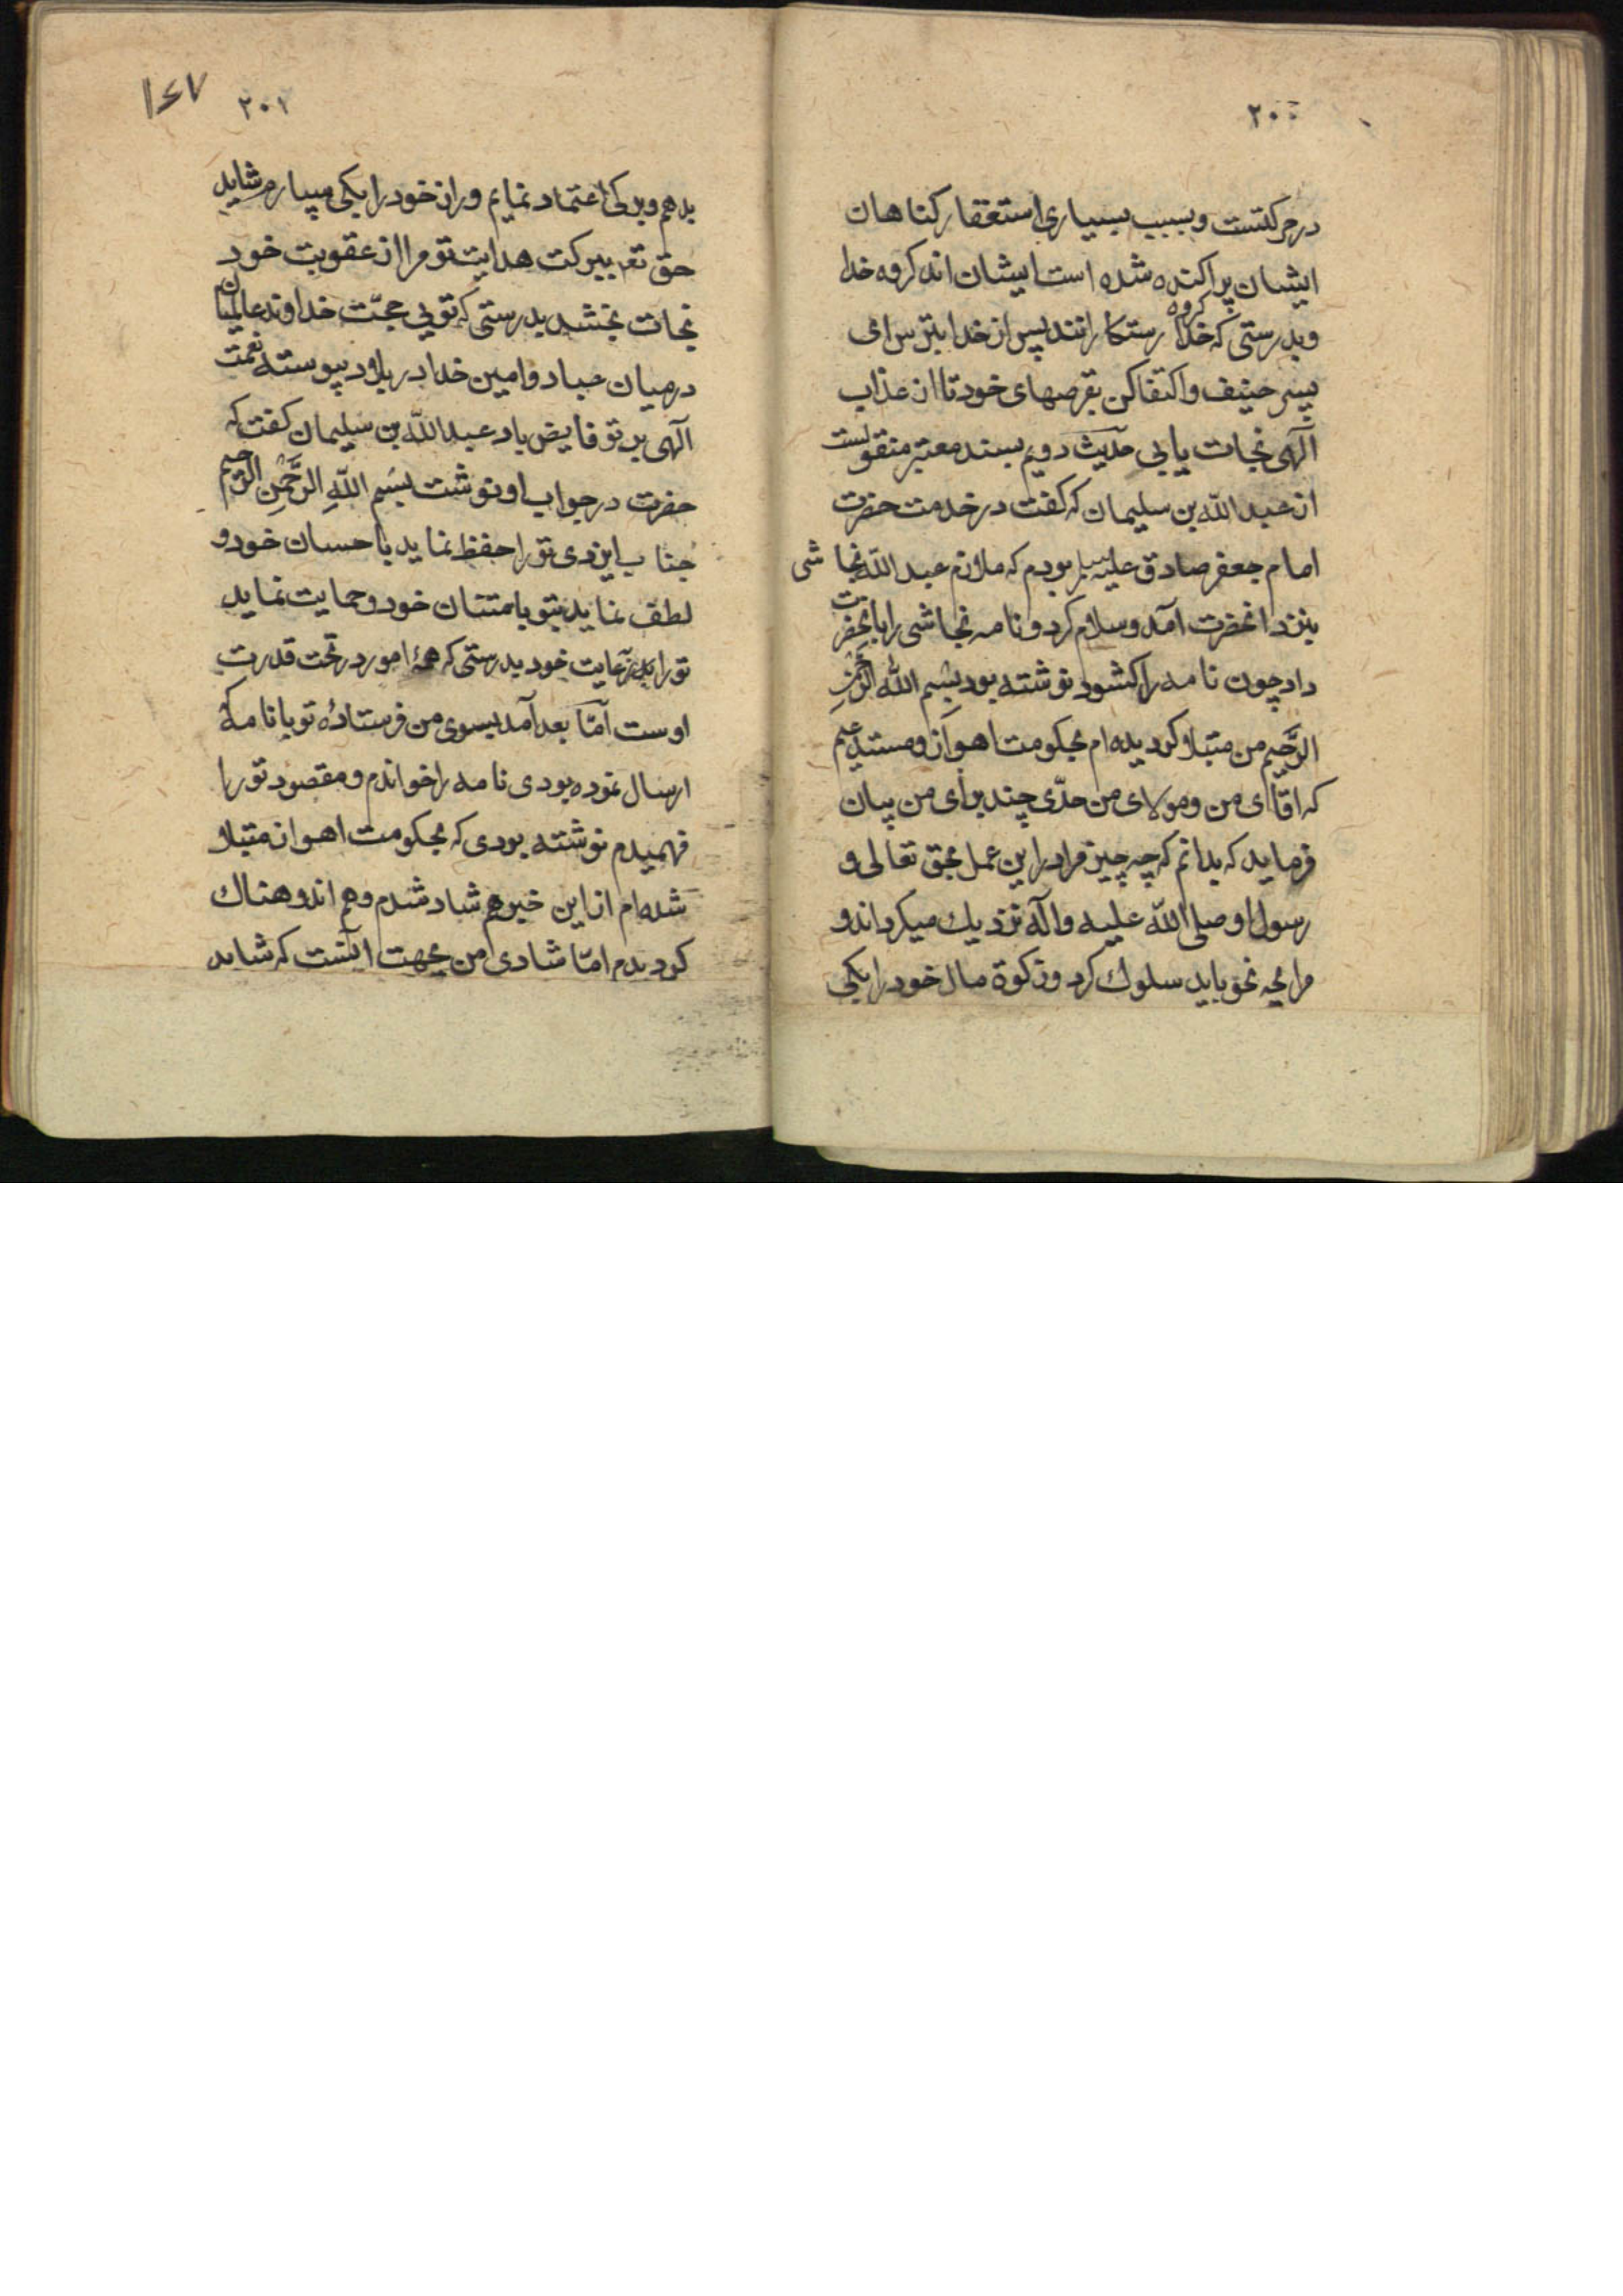 ۲۰۰
در حرکتست و بسبب بسیاری استغفار کناهان
ایشان پراکنده شده است ایشان اند کروه خدا
و بدرستی که کروه خدا رستکارانند پس از خدا بترس ای
پسر حنیف و اکتفا کن بقرصهای خود تا از عذاب
آلهی نجات یابی حدیث دویم بسند معتبر منقولست
از عبد الله بن سلیمان که کفت در خدمت حضرت
امام جعفر صادق علیه السلام بودم که ملازم عبد الله نجاشی
بنزد انحضرت آمد و سلام کرد و نامه نجاشی را بانحضرت
داد چون نامه را کشود نوشته بود بِسْمِ الله الرَّحْمٰنِ
الرَّحیم من مبتلا کردیده ام بحکومت اهواز و مستدعیم
که اقای من و مولای من حدّی چند برای من بیان
فرماید که بدانم که چه چیز مرا در این عمل بحق تعالی و
رسول او صلی الله علیه و آله نزدیك میکرداند و
مرا بچه نحو باید سلوك کرد و زکوة مال خود را بکی
۱۴۷
۲۰۱
بدهم و بر کی اعتماد نمایم و راز خود را بکی سپارم شاید
حق تع ببرکت هدایت تو مرا از عقوبت خود
نجات بخشد بدرستی که تویی حجّت خداوند عالمیان
در میان عباد و امین خدا در بلاد پیوسته نعمت
آلهی بر تو فایض باد عبد الله بن سلیمان کفت که
حضرت در جواب او نوشت بِسْمِ اللهِ الرَّحْمٰنِ الرَّحیم
جناب ایزدی تو را حفظ نماید باحسان خود و
لطف نماید بتو بامتنان خود و حمایت نماید
تو را برعایت خود بدرستی که همهٔ امور در تحت قدرت
اوست امّا بعد آمد بسوی من فرستادهٔ تو با نامهٔ که
ارسال نموده بودی نامه را خواندم و مقصود تو را
فهمیدم نوشته بودی که بحکومت اهواز مبتلا
شده ام از این خبر هم شاد شدم و هم اندوهناك
کردیدم امّا شادی من بجهت انست که شاید